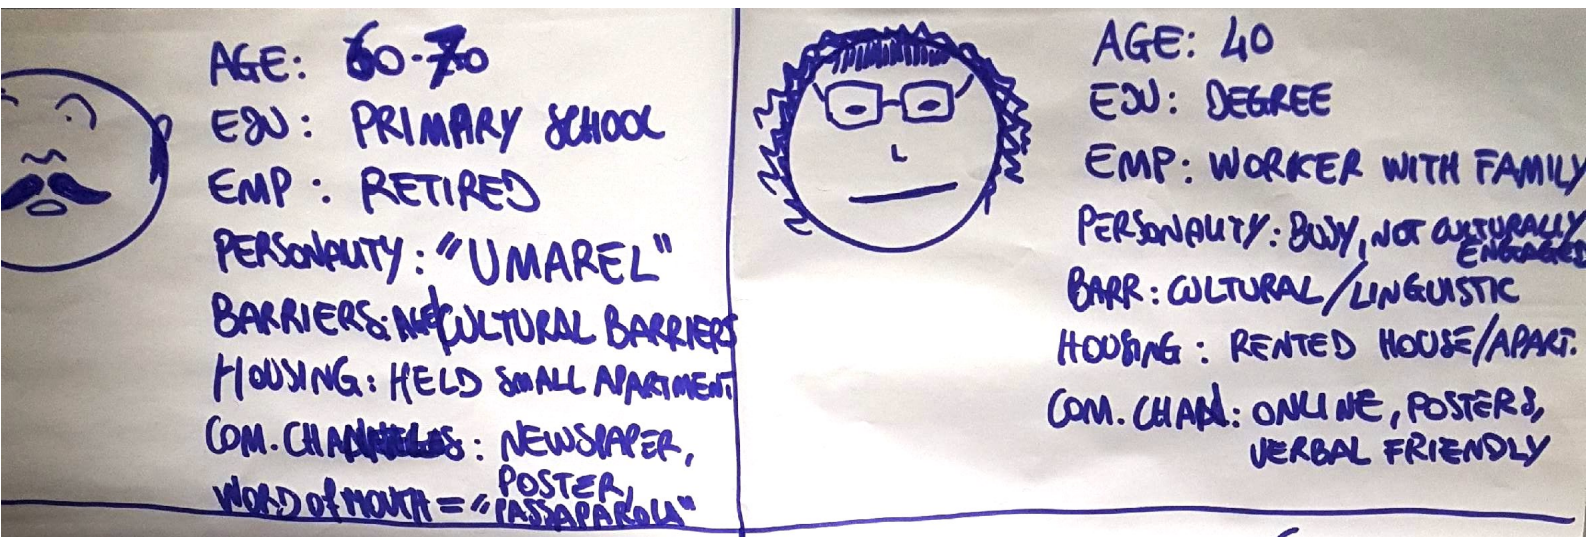 AGE: 60-70
EDU: PRIMARY SCHOOL
EMP: RETIRED
PERSONALITY: "UMAREL"
BARRIERS: CULTURAL BARRIERS
HOUSING: HELD SMALL APARTMENT
COM. CHANNELS: NEWSPAPER,
POSTER,
WORD OF MOUTH = "PASSAPAROLA"
AGE: 40
EDU: DEGREE
EMP: WORKER WITH FAMILY
PERSONALITY: BUSY, NOT CULTURALLY
ENGAGED
BARR: CULTURAL/LINGUISTIC
HOUSING: RENTED HOUSE/APART.
COM. CHAN: ONLINE, POSTERS,
VERBAL FRIENDLY